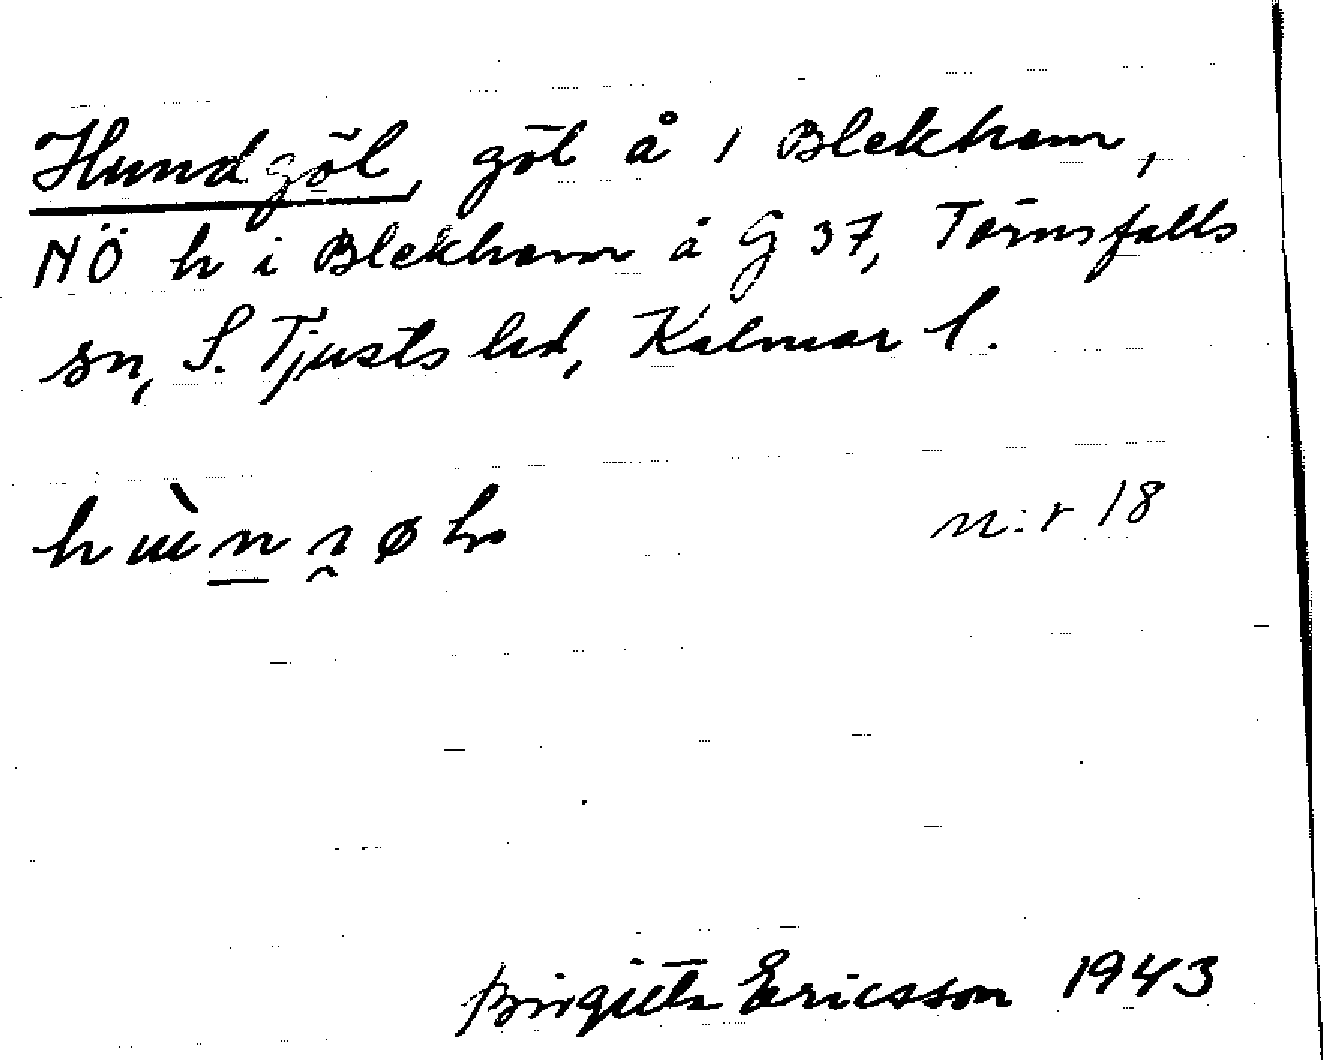 Hundgöl, göl å 1 Blekhem,
NÖ h i Blekhem å G 37, Törnsfalls
sn, S. Tjusts hd, Kalmar l.
n:r 18
Birgitta Ericsson 1943